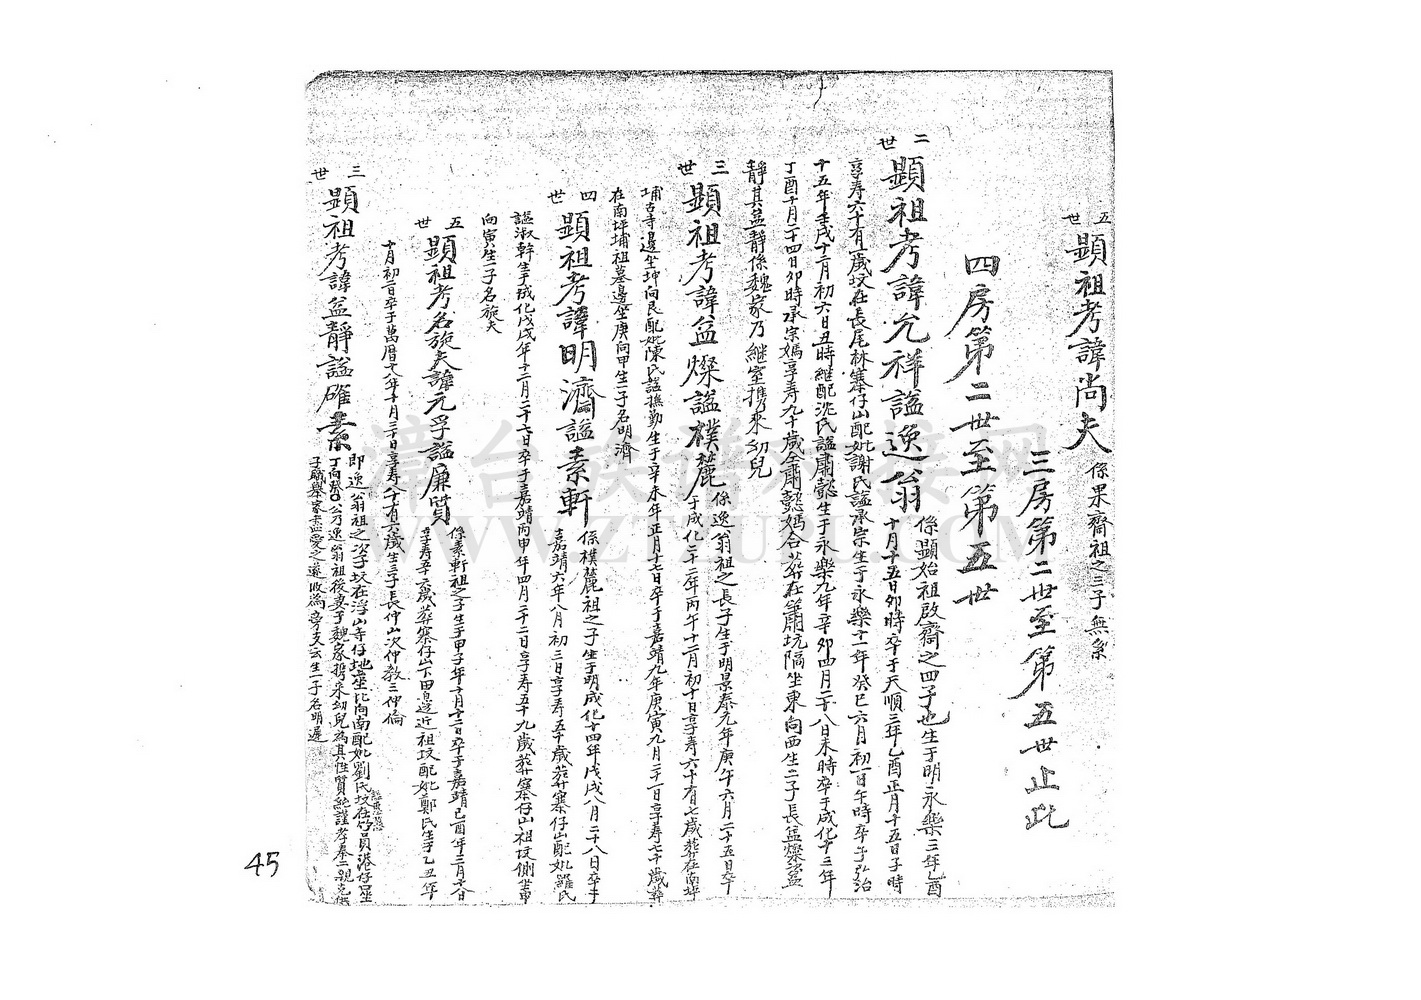 五世 顯祖考諱尚夫 係果齋祖之三子無系
三房第二世至第五世止此
四房第二世至第五世
二世 顯祖考諱允祥謚逸翁 係顯始祖啟齋之四子也生于明永樂三年乙酉
十月十五日卯時卒于天順三年乙酉正月十五日子時
享寿六十有一歲坟在長尾林寨仔山配妣謝氏謚承宗生于永樂十一年癸巳六月初一日午時卒于弘治
十五年壬戌十二月初六日丑時継配沈氏謚肅懿生于永樂九年辛卯四月二十八日未時卒于成化十三年
丁酉十月二十四日卯時承宗媽享寿九十歲仝肅懿媽合葬在蕭坑隔坐東向西生二子長益燦次益
靜其益靜係魏家乃継室携來幼兒
三世 顯祖考諱益燦謚樸麓 係逸翁祖之長子生于明景泰元年庚午六月二十五日卒
于成化二十二年丙午十二月初十日享寿六十有七歲葬在南坪
埔古寺邊坐坤向艮配妣陳氏謚撫勤生于辛未年正月十七日卒于嘉靖九年庚寅九月二十一日享寿七十歲葬
在南坪埔祖墓邊坐庚向甲生一子名明濟
四世 顯祖考諱明濟謚素軒 係樸麓祖之子生于明成化十四年戊戌八月二十八日卒于
嘉靖六年八月初三日享寿五十歲葬寨仔山配妣羅氏
謚淑幹生于成化戊戌年十二月二十七日卒于嘉靖丙申年四月二十二日享寿五十九歲葬寨仔山祖坟側坐申
向寅生一子名旋夫
五世 顯祖考名旋夫諱元孚謚廉質 係素軒祖之子生于甲子年十月十二日卒于嘉靖己酉年三月十八日
享寿六歲葬寨仔山下田邊近祖坟配妣鄭氏生于乙丑年
十月初一日卒于萬曆十八年十月二十日享寿八十有六歲生三子長仲山次仲教三仲倫
三世 顯祖考諱益靜謚確素 即逸翁祖之次子坟在浮山寺仔地坐北向南配妣劉氏坟在竹員港仔墘坐
丁向癸〇公乃逸翁祖後妻于魏家携來幼兒為其性質純謹孝奉二親克供
子職舉家盡愛之遂收為旁支云生一子名明遲
45
漳台族譜對接網
WWW.ZTZUPU.COM